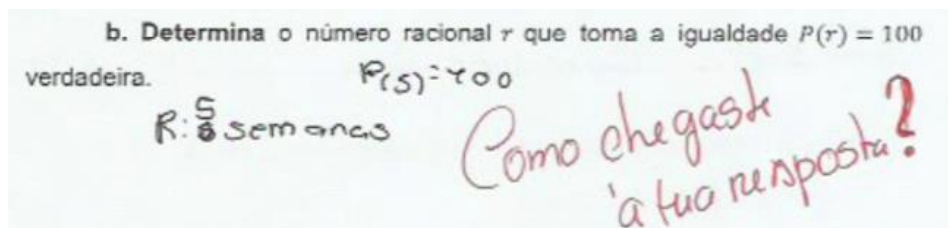 b. Determina o número racional r que toma a igualdade P(r) = 100
verdadeira.
P(5)=100
R: 5 semanas
Como chegaste
à tua resposta?